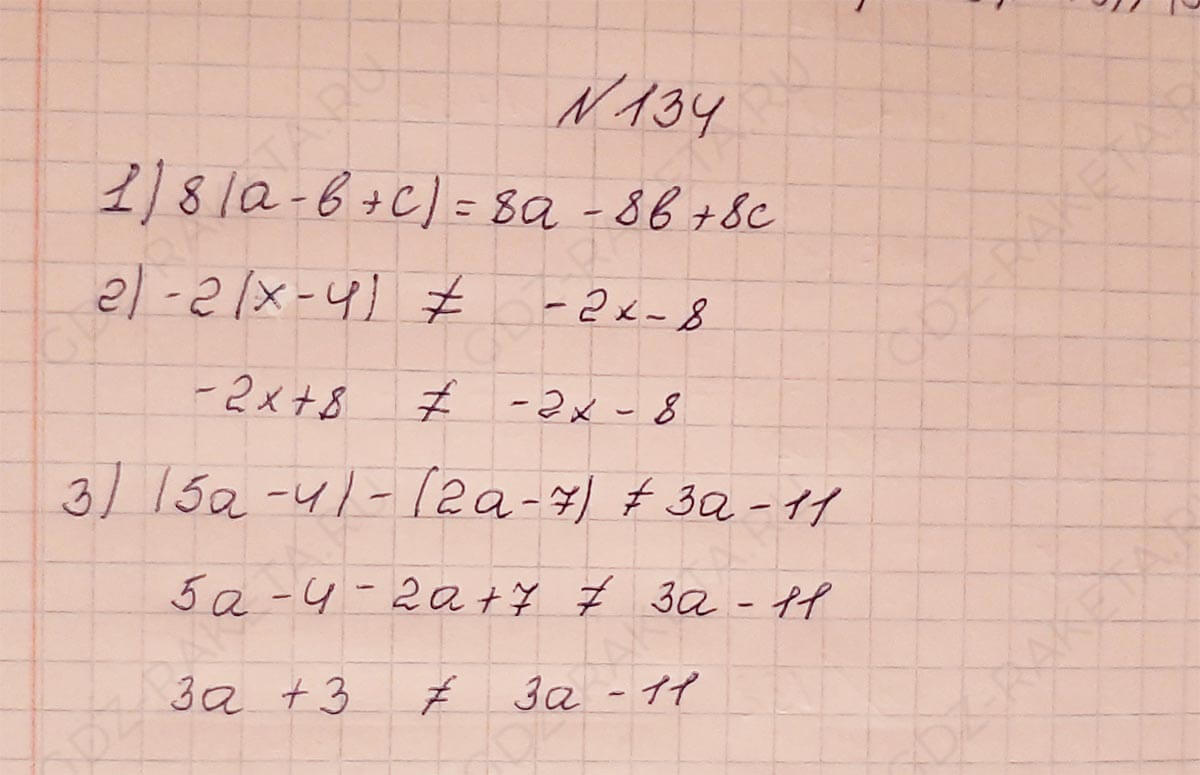 № 134
1) 8(a - b + c) = 8a - 8b + 8c
2) -2(x - 4) ≠ -2x - 8
-2x + 8 ≠ -2x - 8
3) (5a - 4) - (2a - 7) ≠ 3a - 11
5a - 4 - 2a + 7 ≠ 3a - 11
3a + 3 ≠ 3a - 11
GDZ-RAKETA.RU
GDZ-RAKETA.RU
GDZ-RAKETA.RU
GDZ-RAKETA.RU
GDZ-RAKETA.RU
GDZ-RAKETA.RU